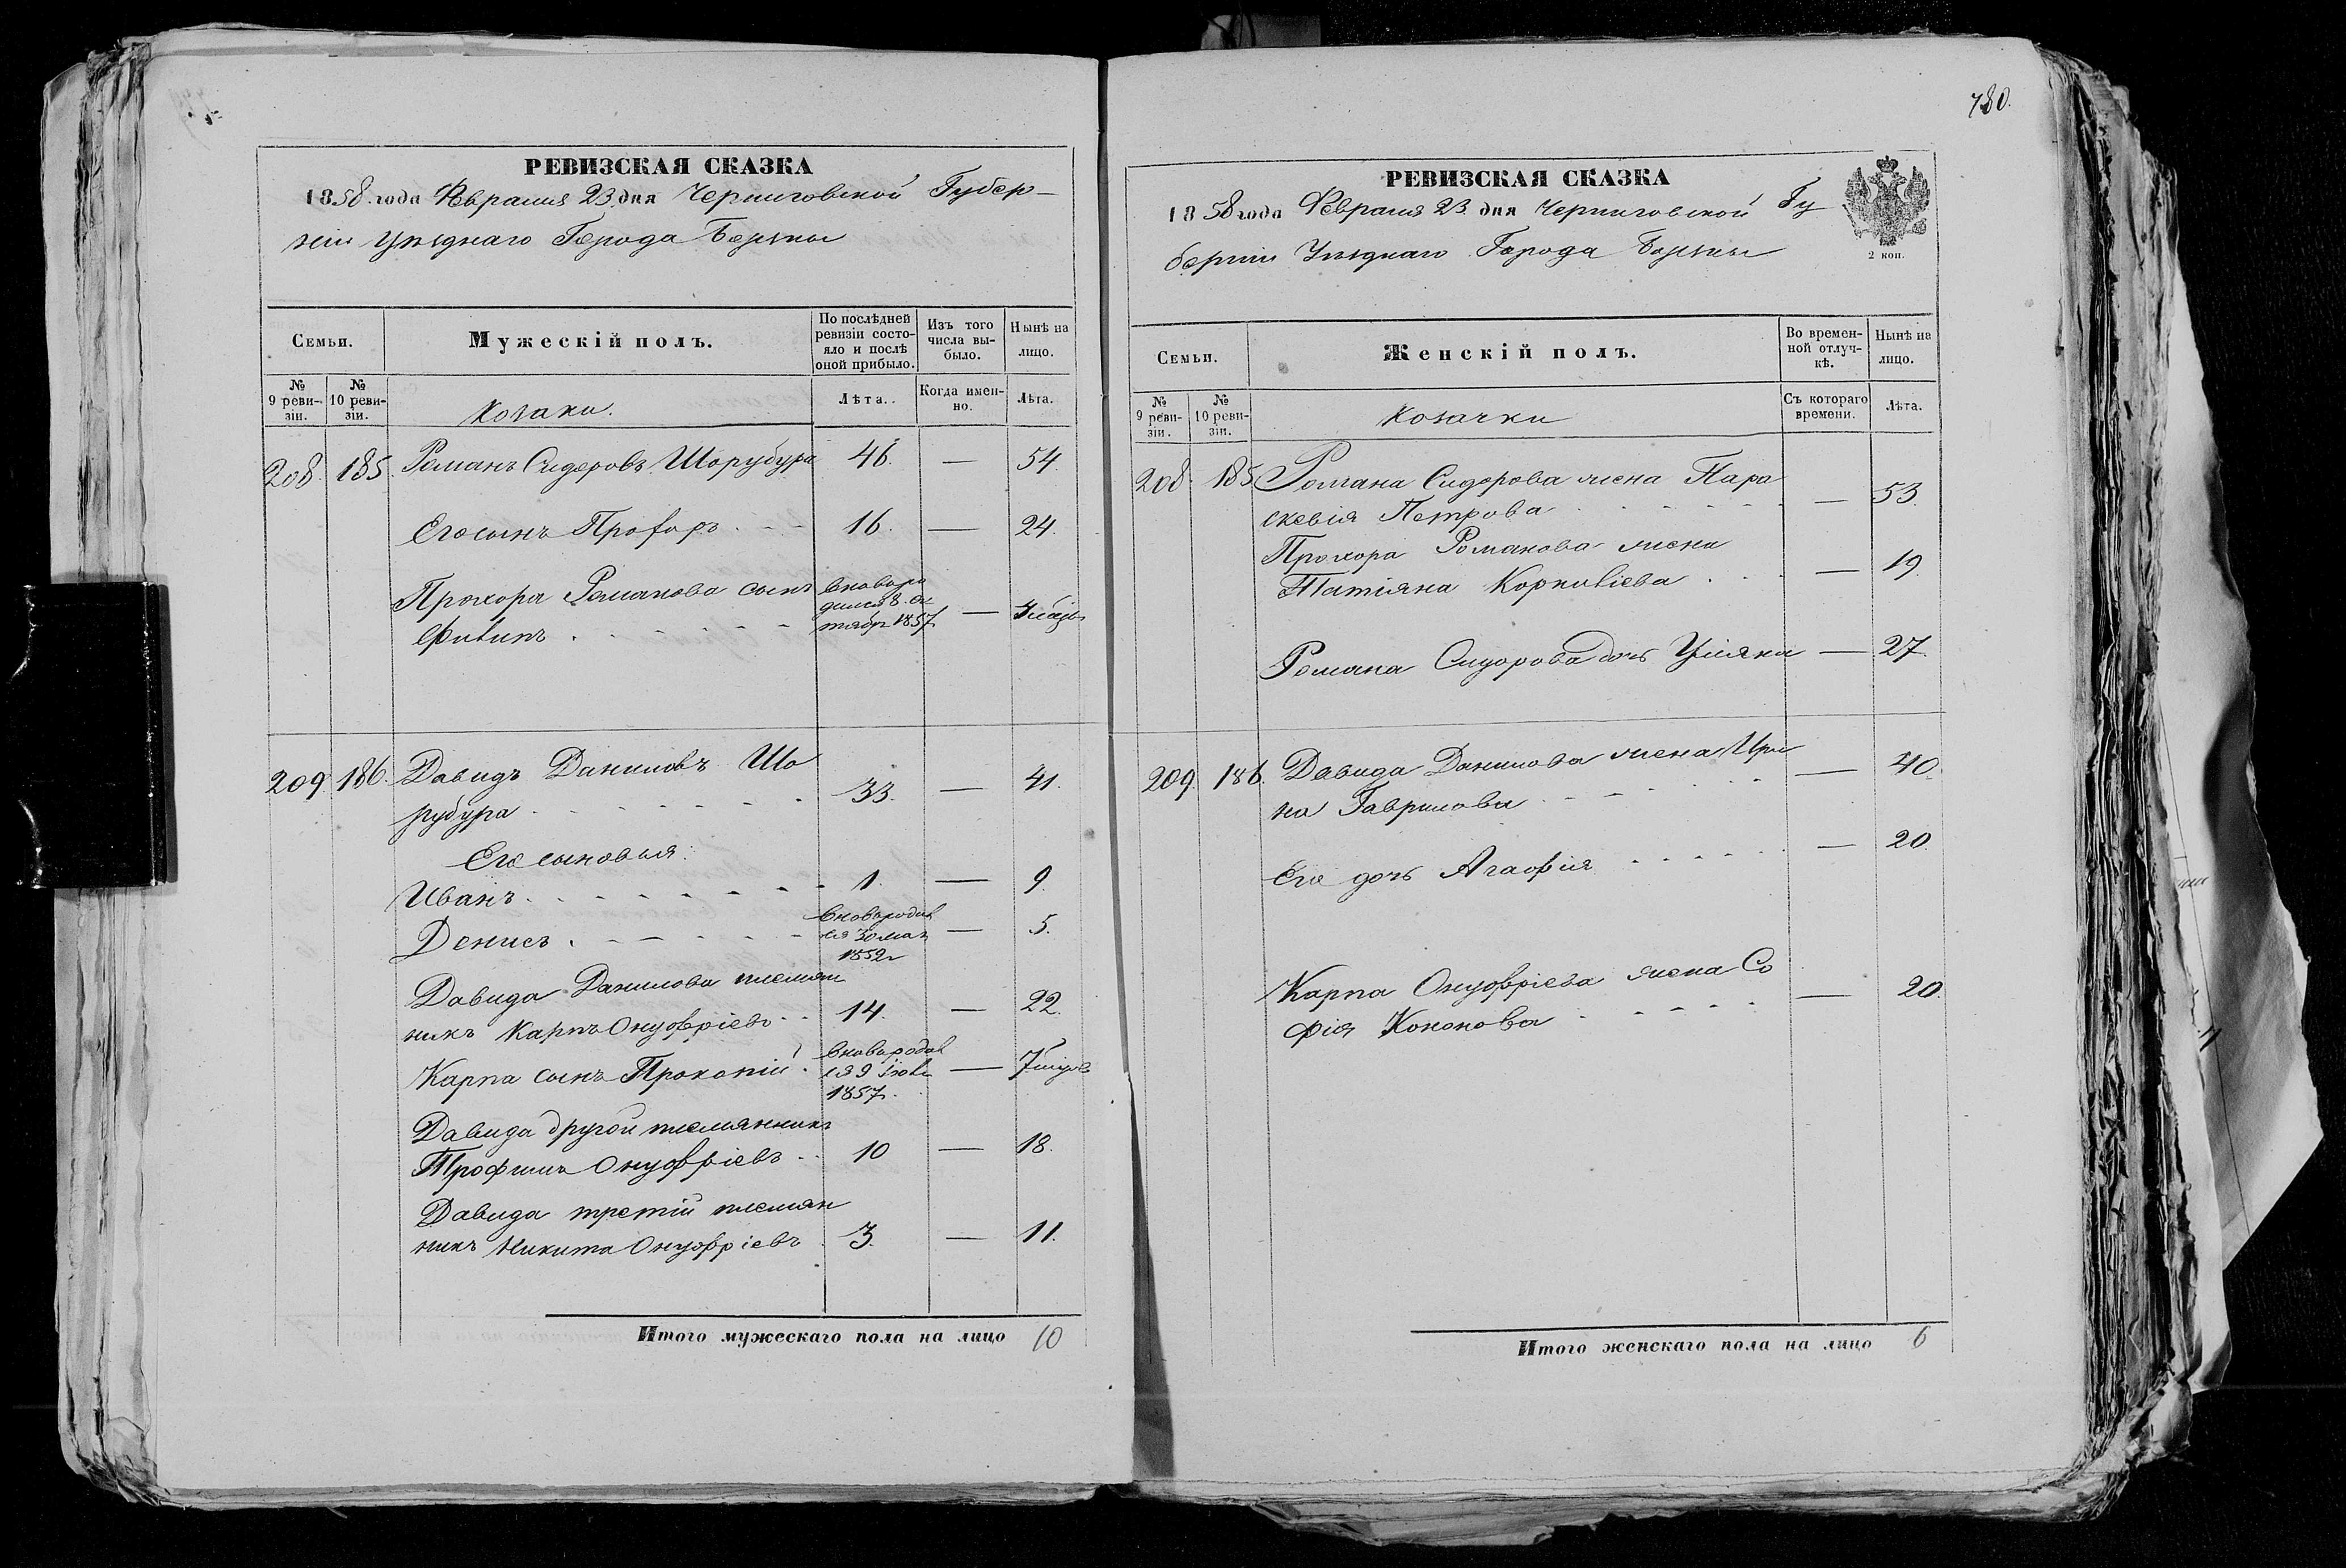 780.
РЕВИЗСКАЯ СКАЗКА
1858 года Февраля 23 дня Черниговской Губер-
ніи Уѣзднаго Города Борзны
Семьи.
Мужескій полъ.
По послѣдней ревизіи состо-
яло и послѣ оной прибыло.
Изъ того числа вы-
было.
Нынѣ на лицо.
№ 9 реви-
зіи.
№ 10 реви-
зіи.
Козаки.
Лѣта.
Когда имен-
но.
Лѣта.
208. 185. Романъ Сидоровъ Шорубура 46. — 54.
Его сынъ Прохоръ 16. — 24.
Прохора Романова сынъ вновь ро
дился 8. ок
Филипъ тябр 1857 —
209 186. Давидъ Даниловъ Шо
рубура 33. — 41.
Его сыновья:
Иванъ 1. — 9.
Денисъ вновь родив
ся 30 мая — 5.
1852
Давида Данилова племян
никъ Карпъ Онуфріевъ 14. — 22.
Карпа сынъ Прокопій вновь родив
ся 9 —
1857.
Давида другой племянникъ
Трофимъ Онуфріевъ 10 — 18.
Давида третій племян
никъ Никита Онуфріевъ 3. — 11.
Итого мужескаго пола на лицо 10
РЕВИЗСКАЯ СКАЗКА
1858 года Февраля 23 дня Черниговской Гу
берніи Уѣзднаго Города Борзны
2 коп.
Семьи.
Женскій полъ.
Во времен-
ной отлуч-
кѣ.
Нынѣ на лицо.
№ 9 реви-
зіи.
№ 10 реви-
зіи.
Козачки
Съ котораго времени.
Лѣта.
208. 185 Романа Сидорова жена Пара
скевія Петрова — 53.
Прохора Романова жена
Татіяна Корниліева — 19.
Романа Сидорова дочь Уліяна — 27.
209. 186. Давида Данилова жена Ири
на Гаврилова — 40.
Его дочь Агафія — 20
Карпа Онуфріева жена Со
фія Кононова — 20.
Итого женскаго пола на лицо 6